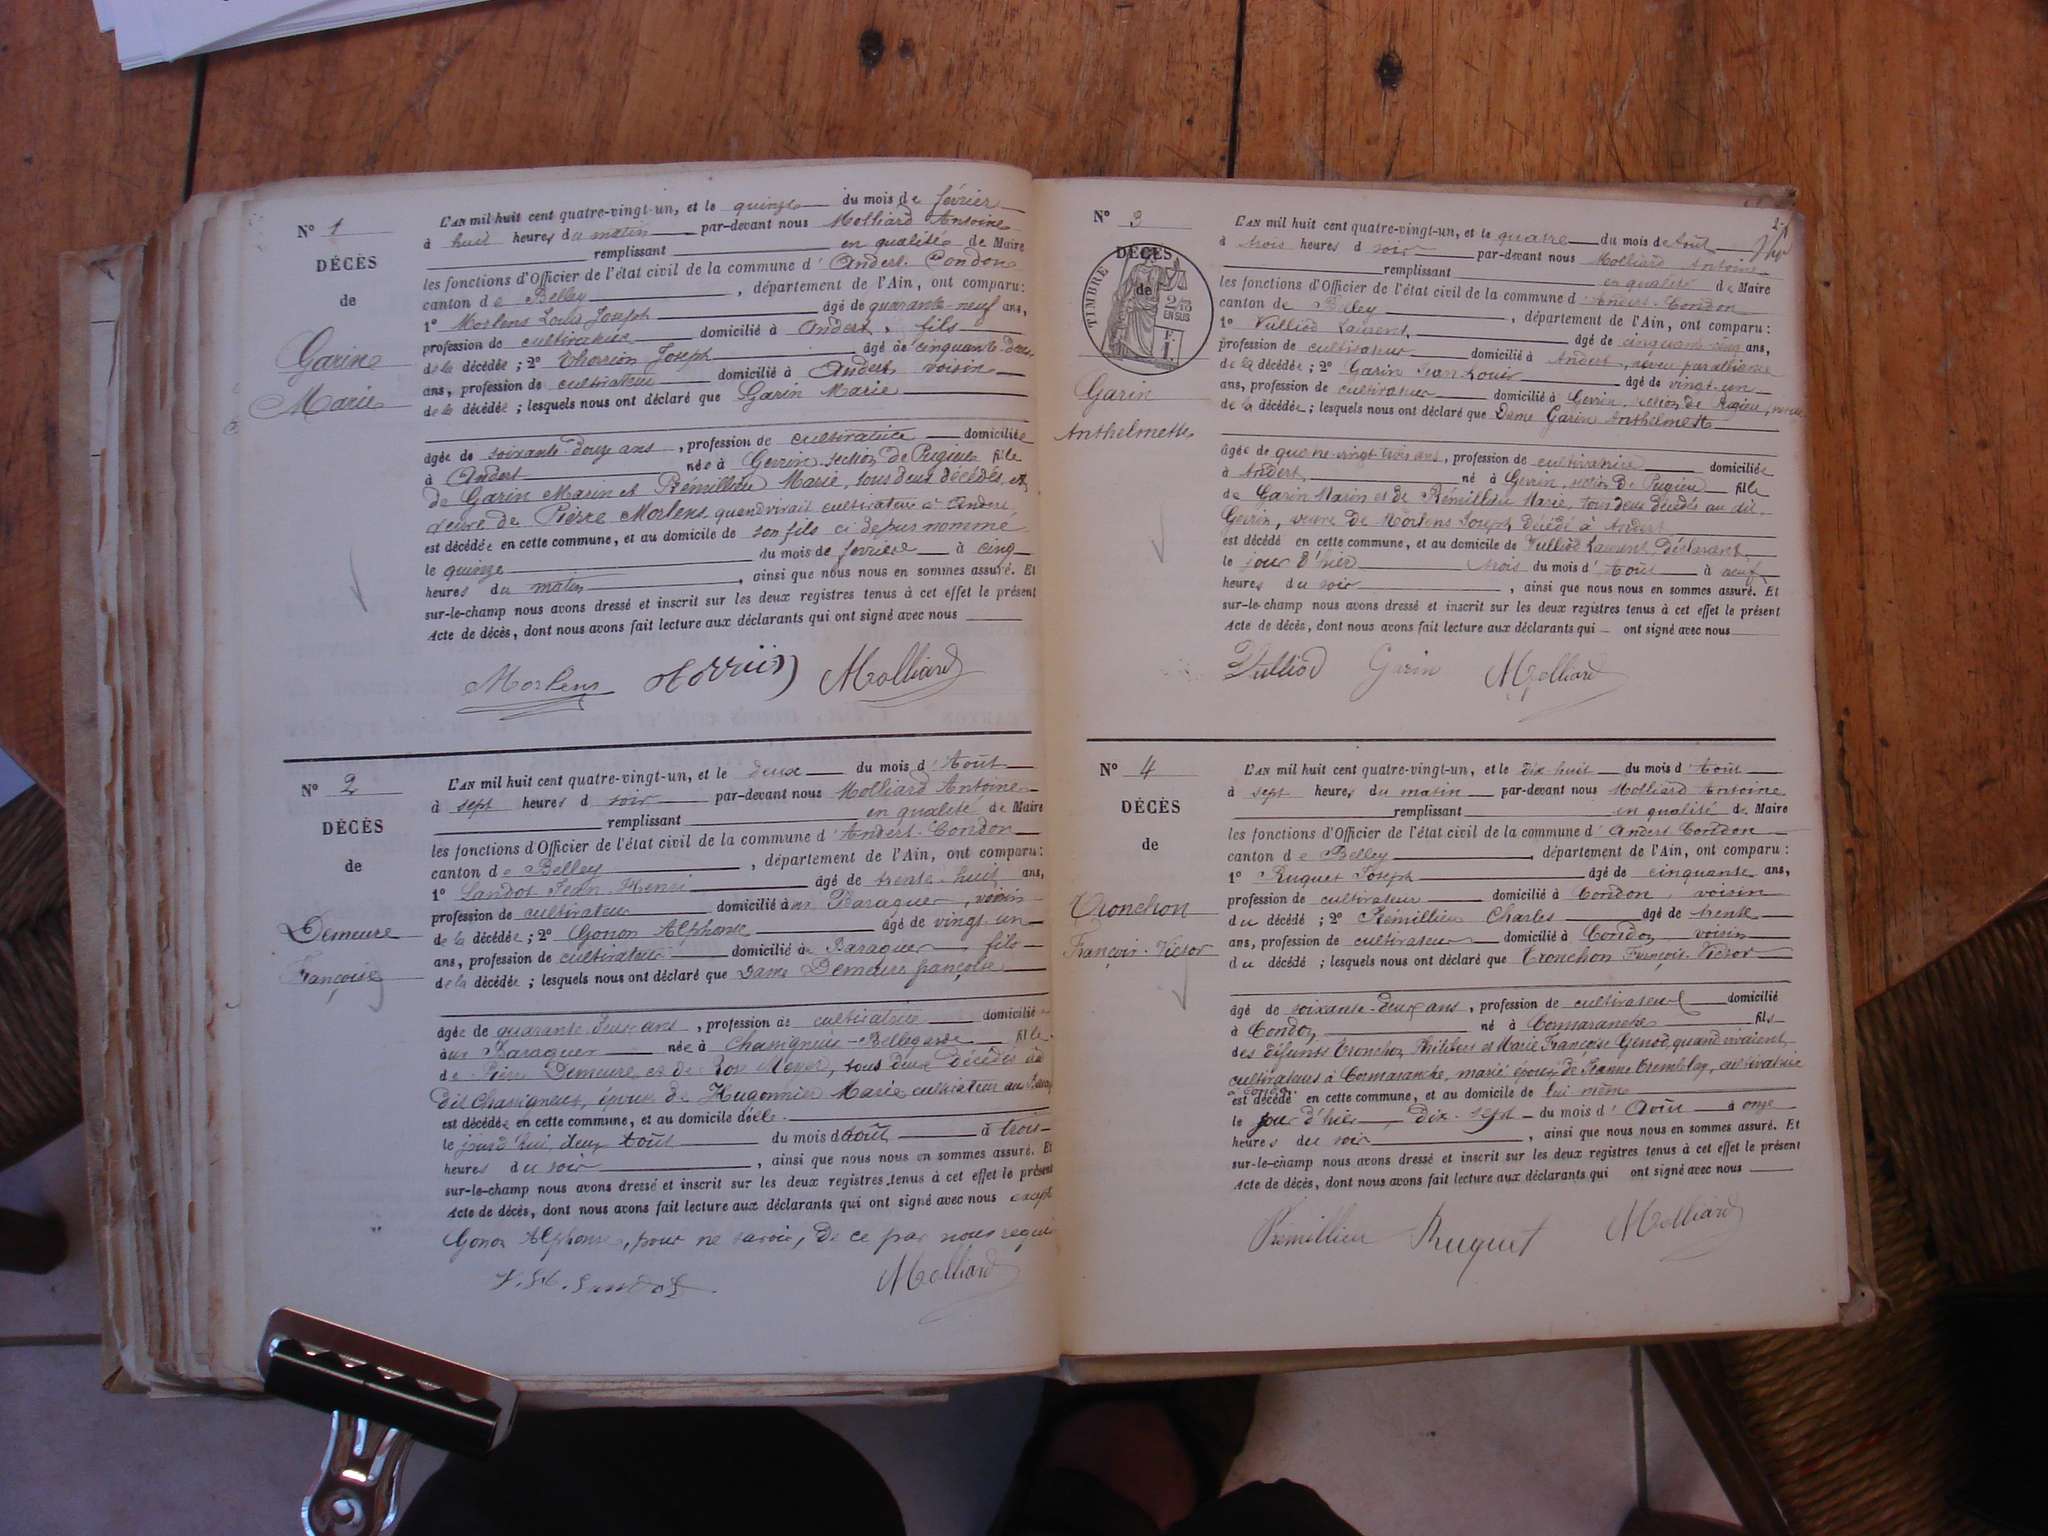 N° 1
DÉCÈS
de
Garin
Marie
L'AN mil huit cent quatre-vingt-un, et le quinze du mois de février
à huit heures du matin par-devant nous Molliard Antoine
remplissant en qualité de Maire
les fonctions d'Officier de l'état civil de la commune d'Andert-Condon
canton de Belley, département de l'Ain, ont comparu:
1° Morlens Louis Joseph âgé de quarante-neuf ans,
profession de cultivateur domicilié à Andert, fils
de la décédée; 2° Thorrion Joseph âgé de cinquante-deux
ans, profession de cultivateur domicilié à Andert, voisin
de la décédée; lesquels nous ont déclaré que Garin Marie
âgée de soixante-douze ans, profession de cultivatrice domiciliée
à Andert née à Gevrin section de Pugieu fille
de Garin Marin et Rémillieu Marie, tous deux décédés, et
veuve de Pierre Morlens quand vivait cultivateur à Andert,
est décédée en cette commune, et au domicile de son fils ci-dessus nommé
le quinze du mois de février à cinq
heures du matin, ainsi que nous nous en sommes assuré. Et
sur-le-champ nous avons dressé et inscrit sur les deux registres tenus à cet effet le présent
Acte de décès, dont nous avons fait lecture aux déclarants qui ont signé avec nous
Morlens Molliard
N° 2
DÉCÈS
de
Demeure
Françoise
L'AN mil huit cent quatre-vingt-un, et le deux du mois d'Août
à sept heures d soir par-devant nous Molliard Antoine
remplissant en qualité de Maire
les fonctions d'Officier de l'état civil de la commune d'Andert-Condon
canton de Belley, département de l'Ain, ont comparu:
1° Landot Jean Henri âgé de trente-huit ans,
profession de cultivateur domicilié à Baraquer, voisin
de la décédée; 2° Gonon Alphonse âgé de vingt-un
ans, profession de cultivateur domicilié à Baraquer fils
de la décédée; lesquels nous ont déclaré que Dame Demeure françoise
âgée de quarante-deux ans, profession de cultivatrice domiciliée
Baraquer née à Chavigneux-Bellegarde fille
de Pierre Demeure et de Rose tous deux décédés
dit Chavigneux, épouse de Hugonnier Marie cultivateur au
est décédée en cette commune, et au domicile d'elle
le jourd'hui deux Août du mois d'août à trois
heures du soir, ainsi que nous nous en sommes assuré. Et
sur-le-champ nous avons dressé et inscrit sur les deux registres tenus à cet effet le présent
Acte de décès, dont nous avons fait lecture aux déclarants qui ont signé avec nous excepté
Gonon Alphonse, pour ne savoir, de ce par nous requis
Molliard
N° 3
DÉCÈS
de
TIMBRE
2/10
EN SUS
F.
1.
Garin
Anthelmette
L'AN mil huit cent quatre-vingt-un, et le quatre du mois de Août
à trois heures d soir par-devant nous Molliard Antoine
remplissant en qualité de Maire
les fonctions d'Officier de l'état civil de la commune d'Andert-Condon
canton de Belley, département de l'Ain, ont comparu:
1° Vulliod Laurent, âgé de cinquante-cinq ans,
profession de cultivateur domicilié à Andert, neveu par alliance
de la décédée; 2° Garin Jean Louis âgé de vingt-un
ans, profession de cultivateur domicilié à Gevrin, section de Pugieu,
de la décédée; lesquels nous ont déclaré que Dame Garin Anthelmette
âgée de quatre-vingt-trois ans, profession de cultivatrice domiciliée
à Andert, né à Gevrin, section de Pugieu fille
de Garin Marin et de Rémillieu Marie, tous deux décédés au dit
Gevrin, veuve de Morlens Joseph décédé à Andert
est décédé en cette commune, et au domicile de Vulliod Laurent, déclarant
le jour d'hier trois du mois d'Août à neuf
heures du soir, ainsi que nous nous en sommes assuré. Et
sur-le-champ nous avons dressé et inscrit sur les deux registres tenus à cet effet le présent
Acte de décès, dont nous avons fait lecture aux déclarants qui ont signé avec nous
Vulliod Garin Molliard
N° 4
DÉCÈS
de
Tronchon
François-Victor
L'AN mil huit cent quatre-vingt-un, et le dix-huit du mois d'Août
à sept heures du matin par-devant nous Molliard Antoine
remplissant en qualité de Maire
les fonctions d'Officier de l'état civil de la commune d'Andert-Condon
canton de Belley, département de l'Ain, ont comparu:
1° Ruguet Joseph âgé de cinquante ans,
profession de cultivateur domicilié à Condon, voisin
du décédé; 2° Rémillieu Charles âgé de trente
ans, profession de cultivateur domicilié à Condon, voisin
du décédé; lesquels nous ont déclaré que Tronchon François-Victor
âgé de soixante-deux ans, profession de cultivateur domicilié
à Condon né à Cormaranche fils
des défunts Tronchon Philibert et Marie Françoise Genod quand vivaient
cultivateurs à Cormaranche, marié époux de Jeanne Tremblay, cultivatrice
à Condon
est décédé en cette commune, et au domicile de lui-même
le jour d'hier, dix-sept du mois d'Août à onze
heures du soir, ainsi que nous nous en sommes assuré. Et
sur-le-champ nous avons dressé et inscrit sur les deux registres tenus à cet effet le présent
Acte de décès, dont nous avons fait lecture aux déclarants qui ont signé avec nous
Rémillieu Ruguet Molliard